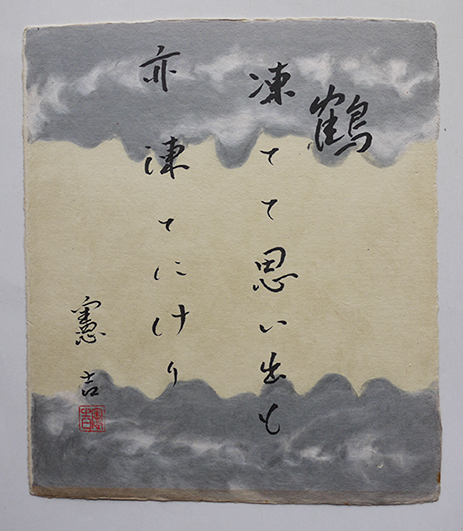 鶴
凍てて思い出も
亦凍てにけり
憲吉